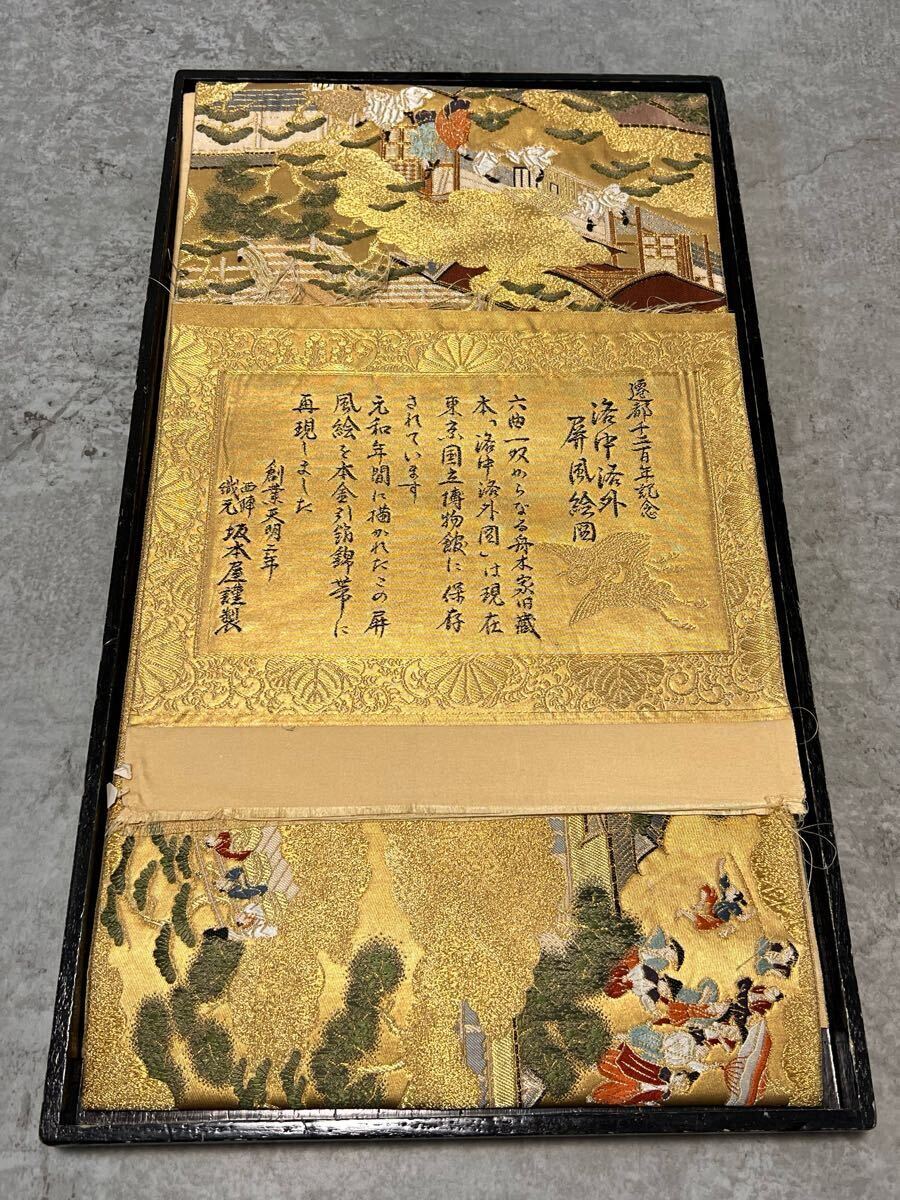 遷都千二百年記念
洛中洛外
屏風絵図
六曲一双からなる舟木家旧蔵
本「洛中洛外図」は現在
東京国立博物館に保存
されています
元和年間に描かれたこの屏
風絵を本金引箔錦帯に
再現しました
創業天明二年
西陣
織元 坂本屋謹製